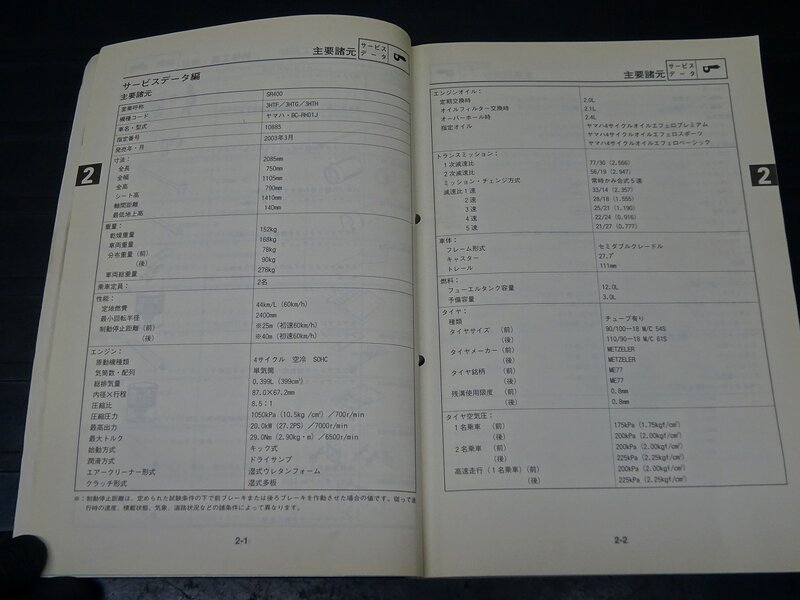 主要諸元
サービス
データ
サービスデータ編
主要諸元
営業呼称 SR400
機種コード 3HTF/3HTG/3HTH
車名・型式 ヤマハ・BC-RH01J
指定番号 10885
発売年・月 2003年3月
寸法:
全長 2085mm
全幅 750mm
全高 1105mm
シート高 790mm
軸間距離 1410mm
最低地上高 140mm
重量:
乾燥重量 152kg
車両重量 168kg
分布重量(前) 78kg
(後) 90kg
車両総重量 278kg
乗車定員: 2名
性能:
定地燃費 44km/L (60km/h)
最小回転半径 2400mm
制動停止距離(前) ※25m (初速60km/h)
(後) ※40m (初速60km/h)
エンジン:
原動機種類 4サイクル 空冷 SOHC
気筒数・配列 単気筒
総排気量 0.399L (399cm³)
内径×行程 87.0×67.2mm
圧縮比 8.5:1
圧縮圧力 1050kPa (10.5kg /cm²) /700r/min
最高出力 20.0kW (27.2PS) /7000r/min
最大トルク 29.0Nm (2.90kg・m) /6500r/min
始動方式 キック式
潤滑方式 ドライサンプ
エアークリーナー形式 湿式ウレタンフォーム
クラッチ形式 湿式多板
※:制動停止距離は、定められた試験条件の下で前ブレーキまたは後ろブレーキを作動させた場合の値です。従って走
行時の速度、積載状態、気象、道路状況などの諸条件によって異なります。
2
2-1
主要諸元
サービス
データ
エンジンオイル:
定期交換時 2.0L
オイルフィルター交換時 2.1L
オーバーホール時 2.4L
指定オイル ヤマハ4サイクルオイルエフェロプレミアム
ヤマハ4サイクルオイルエフェロスポーツ
ヤマハ4サイクルオイルエフェロベーシック
トランスミッション:
1次減速比 77/30 (2.566)
2次減速比 56/19 (2.947)
ミッション・チェンジ方式 常時かみ合式5速
減速比1速 33/14 (2.357)
2速 28/18 (1.555)
3速 25/21 (1.190)
4速 22/24 (0.916)
5速 21/27 (0.777)
車体:
フレーム形式 セミダブルクレードル
キャスター 27.7°
トレール 111mm
燃料:
フューエルタンク容量 12.0L
予備容量 3.0L
タイヤ:
種類 チューブ有り
タイヤサイズ (前) 90/100-18 M/C 54S
(後) 110/90-18 M/C 61S
タイヤメーカー(前) METZELER
(後) METZELER
タイヤ銘柄 (前) ME77
(後) ME77
残溝使用限度 (前) 0.8mm
(後) 0.8mm
タイヤ空気圧:
1名乗車 (前) 175kPa (1.75kgf/cm²)
(後) 200kPa (2.00kgf/cm²)
2名乗車 (前) 200kPa (2.00kgf/cm²)
(後) 225kPa (2.25kgf/cm²)
高速走行(1名乗車)(前) 200kPa (2.00kgf/cm²)
(後) 225kPa (2.25kgf/cm²)
2
2-2